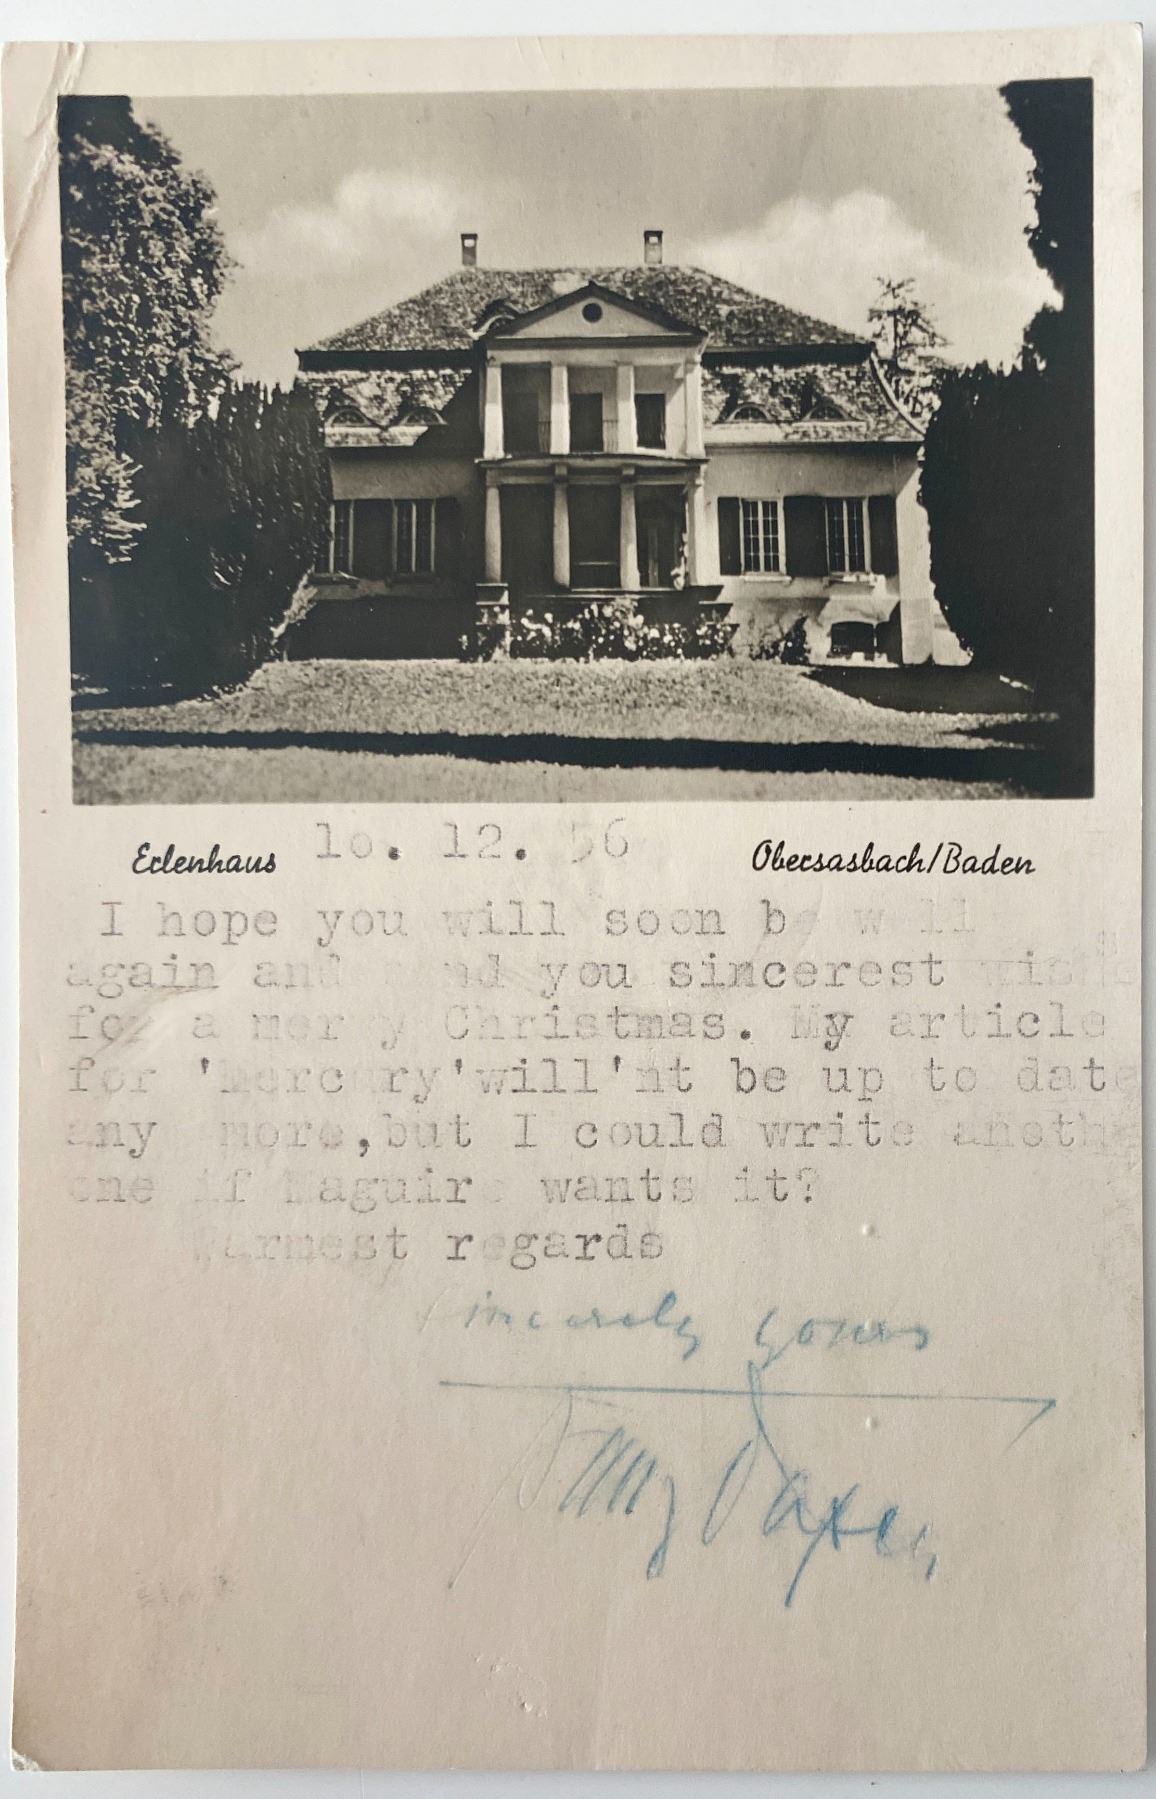 Erlenhaus
lo. 12. 56
Obersasbach/Baden
I hope you will soon be well
again and send you sincerest wishes
for a merry Christmas. My article
for 'Mercury'will'nt be up to date
any more,but I could write another
one if Maguire wants it?
Warmest regards
sincerely yours